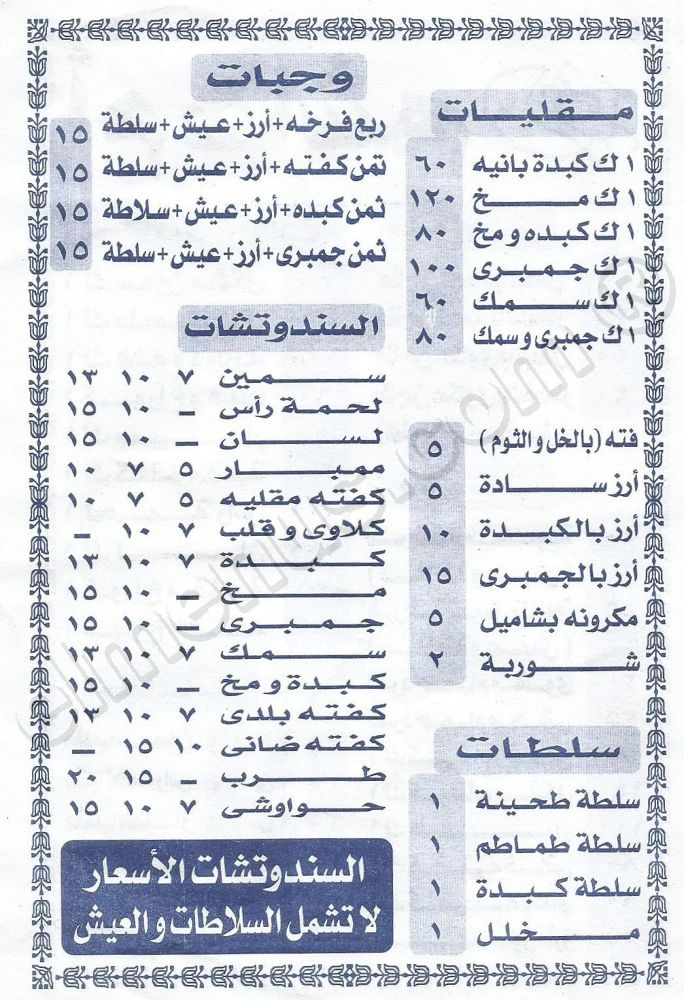 مقليات
١ ك كبدة بانيه ٦٠
١ ك مخ ١٢٠
١ ك كبده ومخ ٨٠
١ ك جمبرى ١٠٠
١ ك سمك ٦٠
١ ك جمبرى وسمك ٨٠
فته (بالخل والثوم) ٥
أرز سادة ٥
أرز بالكبدة ١٠
أرز بالجمبرى ١٥
مكرونه بشاميل ٥
شوربة ٢
سلطات
سلطة طحينة ١
سلطة طماطم ١
سلطة كبدة ١
مخلل ١
وجبات
ربع فرخه + أرز + عيش + سلطة ١٥
تمن كفته + أرز + عيش + سلطة ١٥
ثمن كبده + أرز + عيش + سلاطة ١٥
ثمن جمبرى + أرز + عيش + سلطة ١٥
السندوتشات
سمين ٧ ١٠ ١٣
لحمة رأس – ١٠ ١٥
لسان – ١٠ ١٥
ممبار ٥ ٧ ١٠
كفته مقليه ٥ ٧ ١٠
كلاوى و قلب ٧ ١٠ –
كبدة ٧ ١٠ ١٣
مخ – ١٠ ١٥
جمبرى – ١٠ ١٥
سمك ٧ ١٠ ١٣
كبدة و مخ – ١٠ ١٥
كفته بلدى ٧ ١٠ ١٣
كفته ضانى ١٠ ١٥ –
طرب – ١٥ ٢٠
حواوشى ٧ ١٠ ١٥
السندوتشات الأسعار
لا تشمل السلاطات والعيش
elmenus.com ®